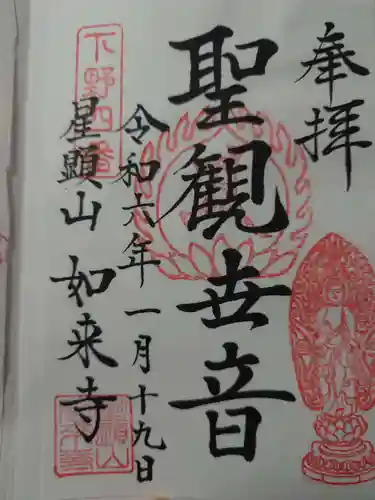 奉拝
聖観世音
令和六年一月十九日
下野四番
星顕山
如来寺